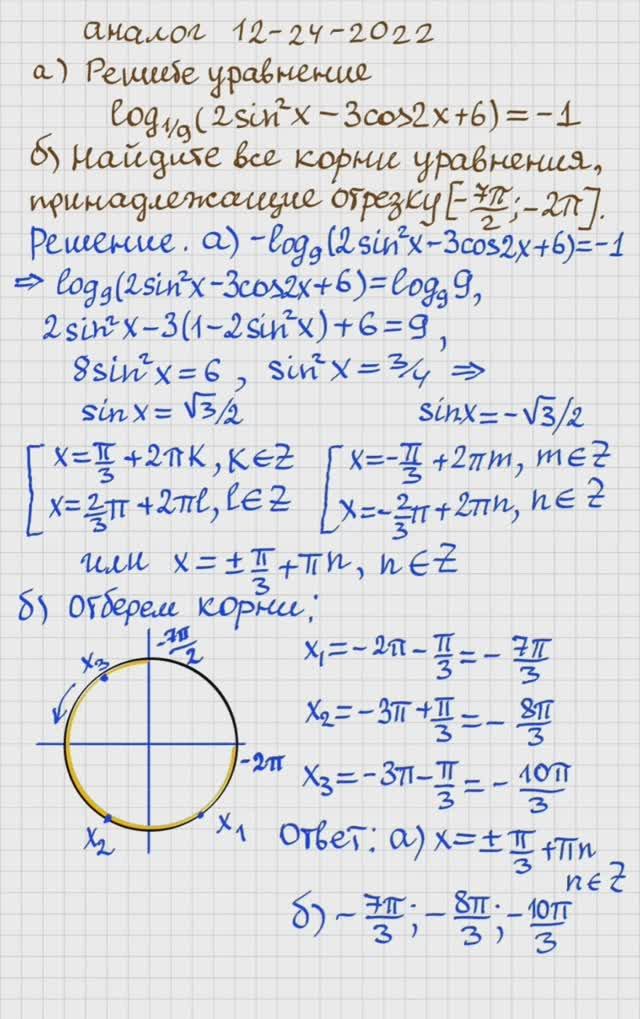 аналог 12-24-2022
а) Решите уравнение
log₁/₉(2sin²x − 3cos2x + 6) = −1
б) Найдите все корни уравнения,
принадлежащие отрезку [−7π/2; −2π].
Решение. а) −log₉(2sin²x−3cos2x+6)=−1
⇒ log₉(2sin²x−3cos2x+6)=log₉9,
2sin²x−3(1−2sin²x)+6=9,
8sin²x=6, sin²x=3/4 ⇒
sinx=√3/2 sinx=−√3/2
[x=π/3+2πk, k∈Z [x=−π/3+2πm, m∈Z
[x=2/3π+2πl, l∈Z [x=−2/3π+2πn, n∈Z
или x=±π/3+πn, n∈Z
б) Отберем корни:
−7π/2
x₃
−2π
x₂
x₁
x₁=−2π−π/3=−7π/3
x₂=−3π+π/3=−8π/3
x₃=−3π−π/3=−10π/3
Ответ: а) x=±π/3+πn
n∈Z
б) −7π/3; −8π/3; −10π/3